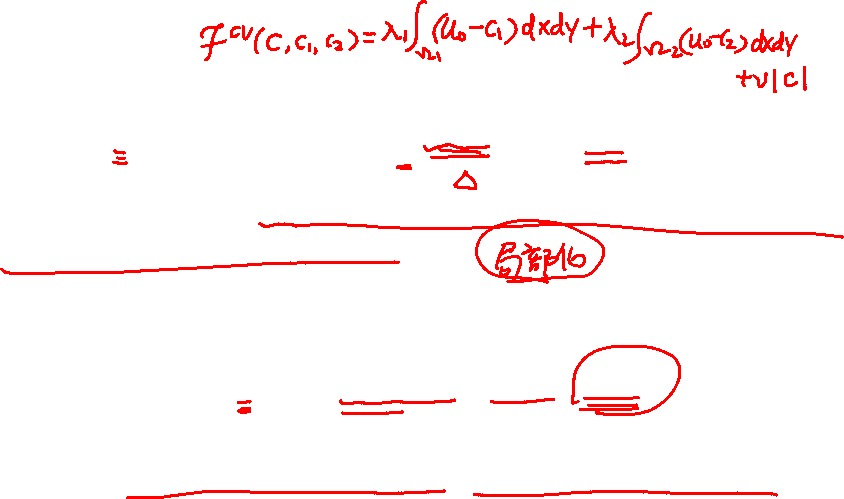 F^{CV}(C, C₁, C₂) = λ₁∫_{Ω₁}(u₀-C₁)dxdy + λ₂∫_{Ω₂}(u₀-C₂)dxdy
+ν|C|
局部化